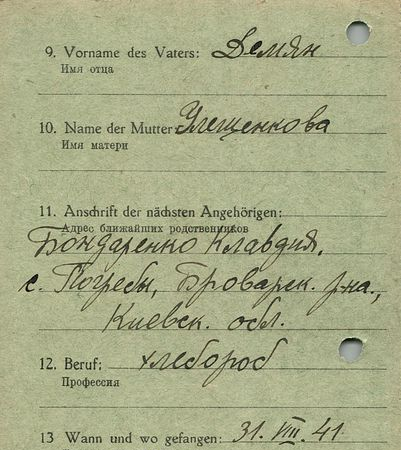 9. Vorname des Vaters: Демян
Имя отца
10. Name der Mutter: Улещенкова
Имя матери
11. Anschrift der nächsten Angehörigen:
Адрес ближайших родственников
Бондаренко Клавдия,
с. Погребы, Броварск. р-на,
Киевск. обл.
12. Beruf: хлебороб
Профессия
13 Wann und wo gefangen: 31. VIII. 41